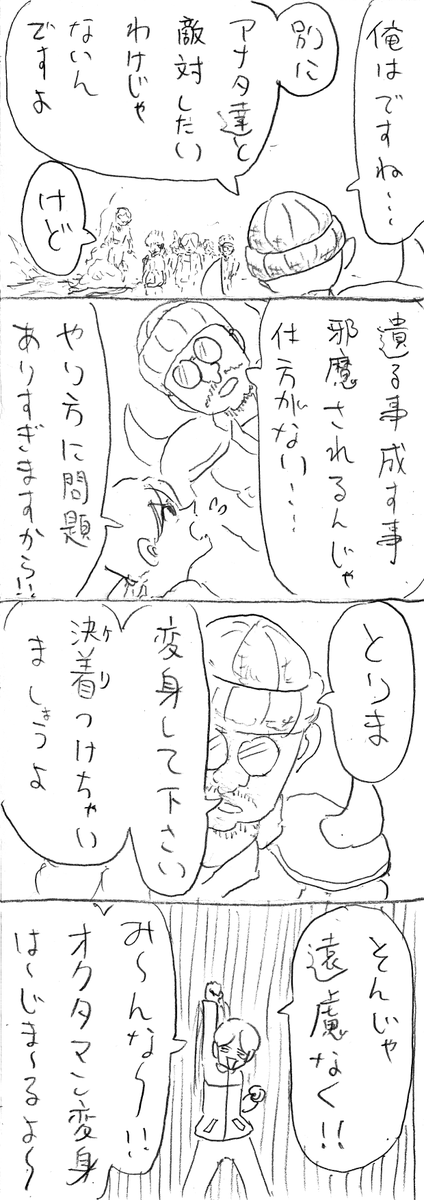 俺はですね…
別に
アナタ達と
敵対したい
わけじゃ
ないん
ですよ
けど
遺る事成す事
邪魔されるんじゃ
仕方がない…
やり方に問題
ありすぎますから!!
とりま
変身して下さい
決着つけちゃい
ケリ
ましょうよ
そんじゃ
遠慮なく!!
み〜んな〜!!
オクタマン変身
は〜じま〜るよ〜